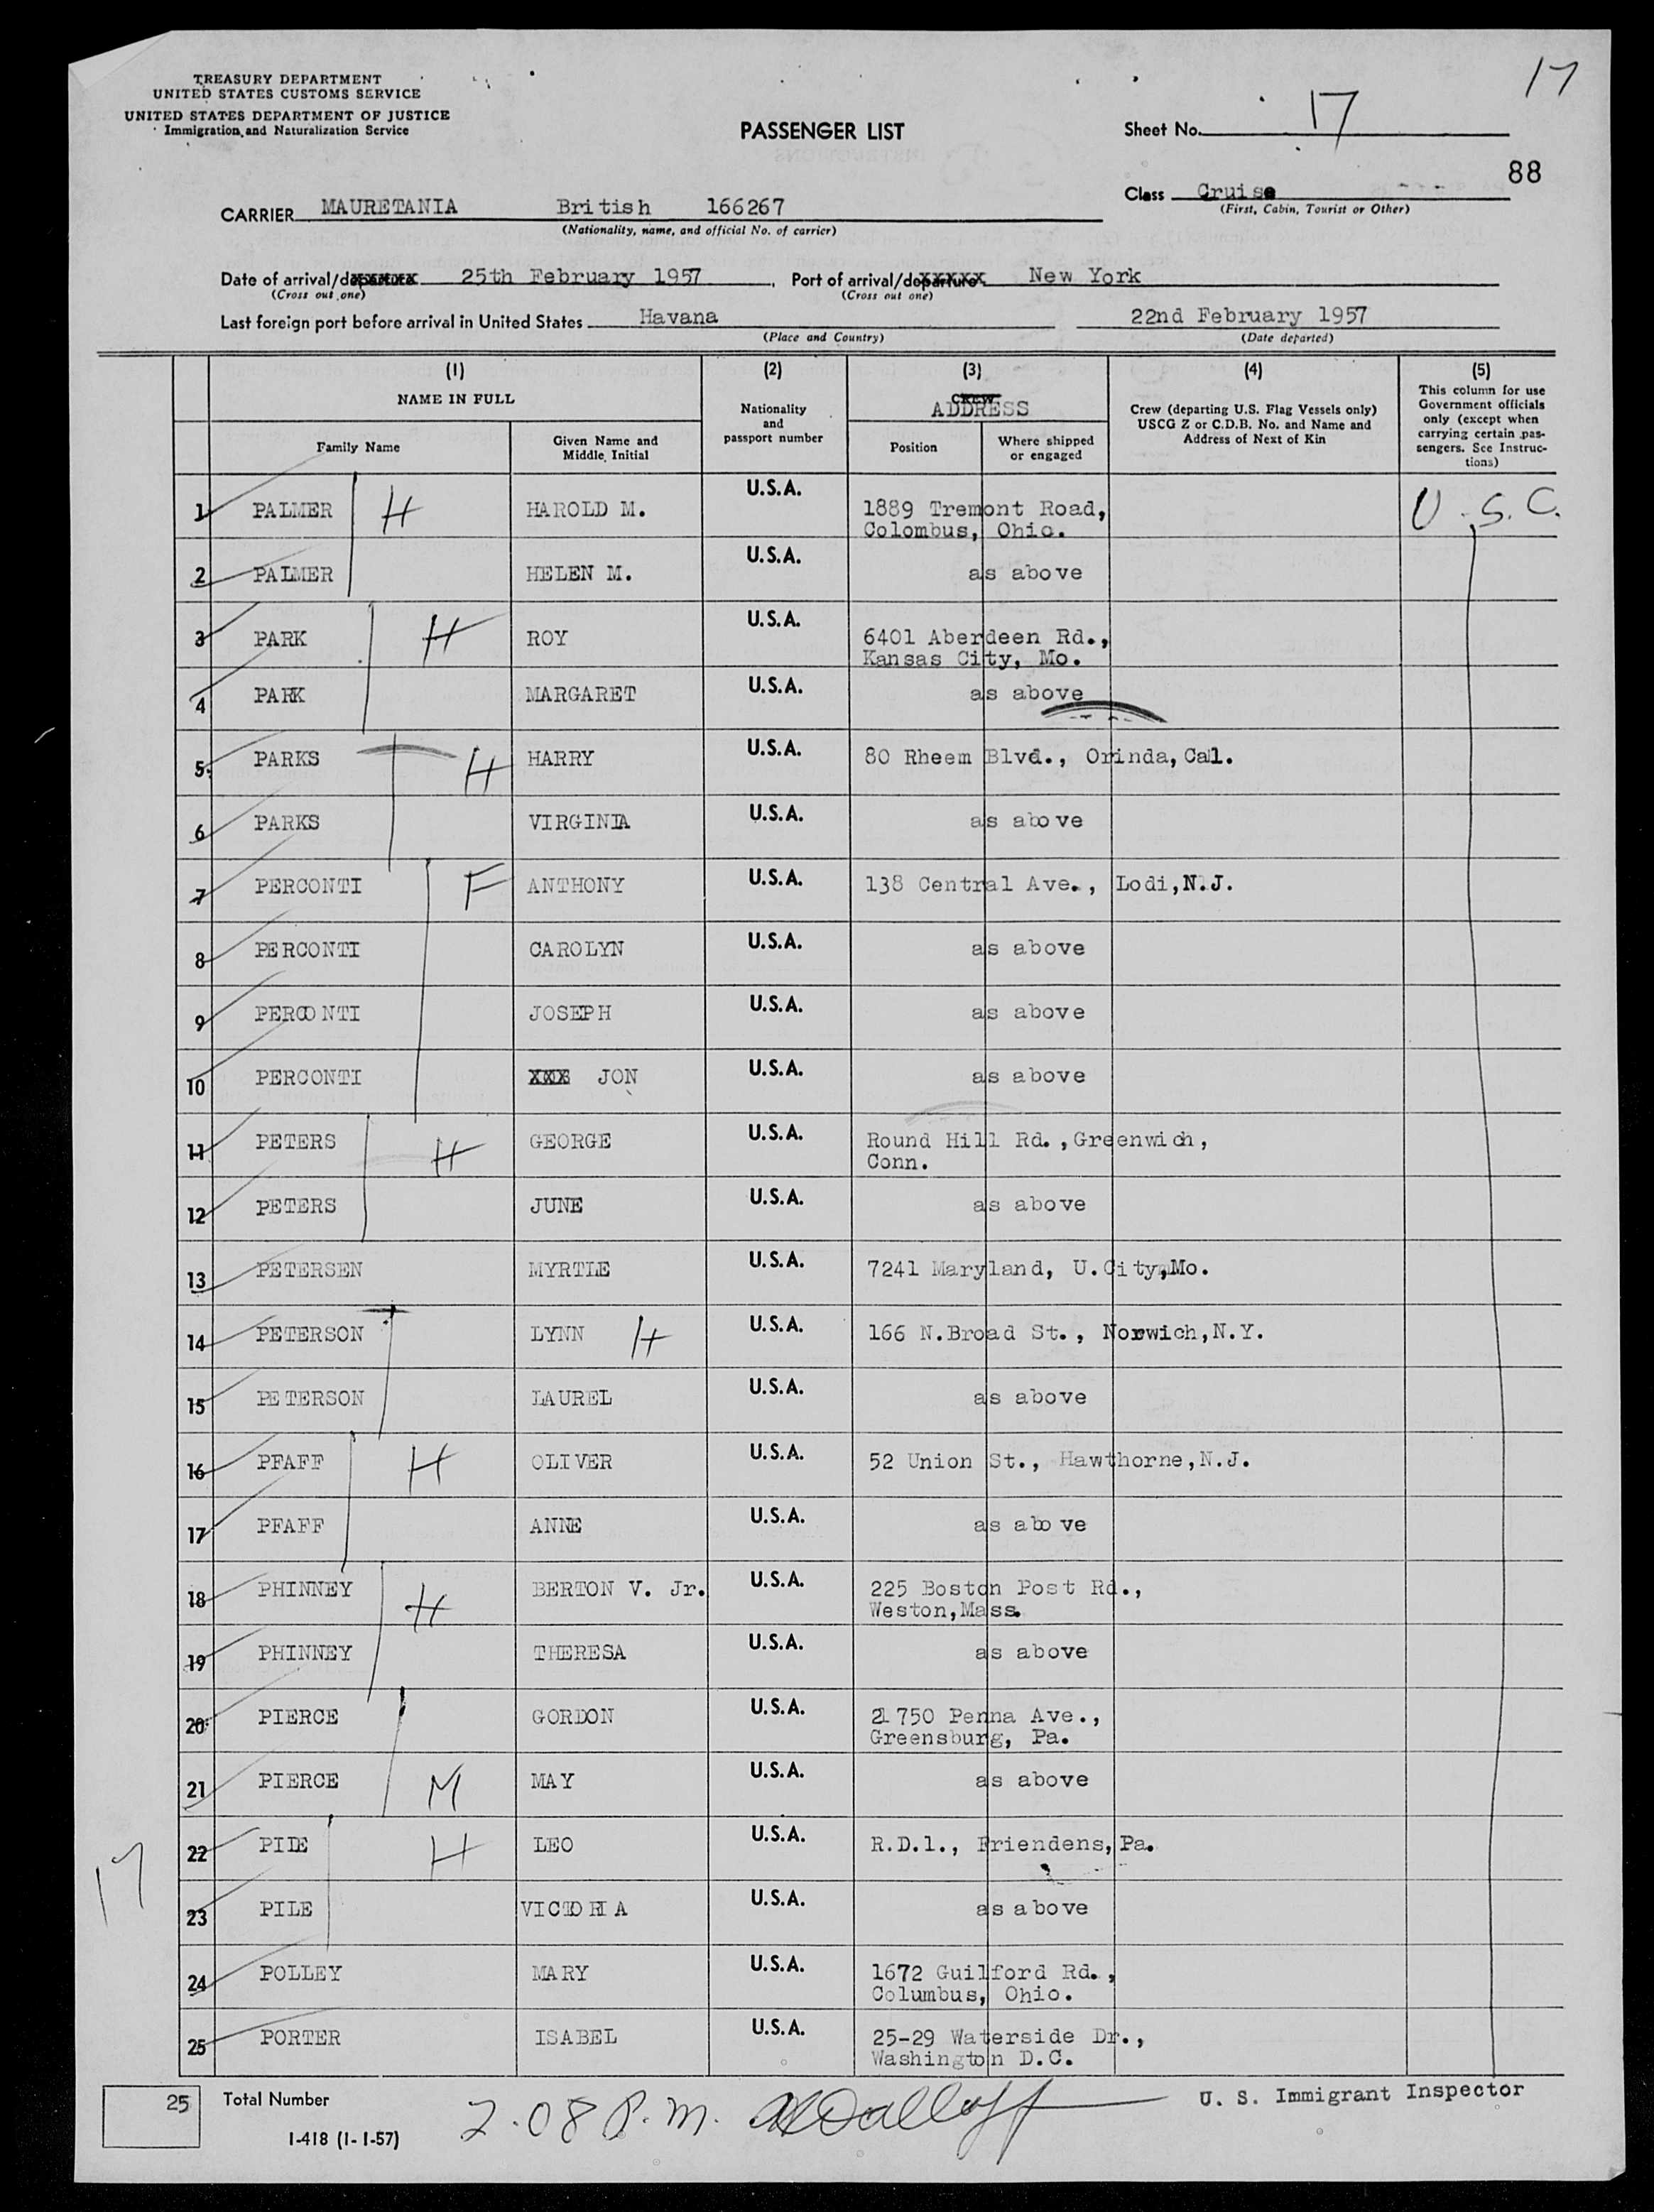 17
TREASURY DEPARTMENT
UNITED STATES CUSTOMS SERVICE
UNITED STATES DEPARTMENT OF JUSTICE
Immigration and Naturalization Service
PASSENGER LIST
Sheet No. 17
88
Class Cruise
(First, Cabin, Tourist or Other)
CARRIER MAURETANIA British 166267
(Nationality, name, and official No. of carrier)
Date of arrival/departure 25th February 1957, Port of arrival/departure New York
(Cross out one) (Cross out one)
Last foreign port before arrival in United States Havana 22nd February 1957
(Place and Country) (Date departed)
(1) (2) (3) (4) (5)
NAME IN FULL
Family Name
Given Name and
Middle Initial
Nationality
and
passport number
CREW
ADDRESS
Position
Where shipped
or engaged
Crew (departing U.S. Flag Vessels only)
USCG Z or C.D.B. No. and Name and
Address of Next of Kin
This column for use
Government officials
only (except when
carrying certain pas-
sengers. See Instruc-
tions)
1 PALMER H HAROLD M. U.S.A. 1889 Tremont Road, U.S.C.
Colombus, Ohio.
2 PALMER HELEN M. U.S.A. as above
3 PARK H ROY U.S.A. 6401 Aberdeen Rd.,
Kansas City, Mo.
4 PARK MARGARET U.S.A. as above
5 PARKS H HARRY U.S.A. 80 Rheem Blvd., Orinda, Cal.
6 PARKS VIRGINIA U.S.A. as above
7 PERCONTI F ANTHONY U.S.A. 138 Central Ave., Lodi, N.J.
8 PERCONTI CAROLYN U.S.A. as above
9 PERCONTI JOSEPH U.S.A. as above
10 PERCONTI XXX JON U.S.A. as above
11 PETERS H GEORGE U.S.A. Round Hill Rd., Greenwich,
Conn.
12 PETERS JUNE U.S.A. as above
13 PETERSEN MYRTLE U.S.A. 7241 Maryland, U.City, Mo.
14 PETERSON LYNN H U.S.A. 166 N.Broad St., Norwich, N.Y.
15 PETERSON LAUREL U.S.A. as above
16 PFAFF H OLIVER U.S.A. 52 Union St., Hawthorne, N.J.
17 PFAFF ANNE U.S.A. as above
18 PHINNEY H BERTON V. Jr. U.S.A. 225 Boston Post Rd.,
Weston, Mass.
19 PHINNEY THERESA U.S.A. as above
20 PIERCE GORDON U.S.A. 750 Penna Ave.,
Greensburg, Pa.
21 PIERCE M MAY U.S.A. as above
22 PILE H LEO U.S.A. R.D.1., Friendens, Pa.
17
23 PILE VICTORIA U.S.A. as above
24 POLLEY MARY U.S.A. 1672 Guilford Rd.,
Columbus, Ohio.
25 PORTER ISABEL U.S.A. 25-29 Waterside Dr.,
Washington D.C.
25 Total Number
2.08 P.m.
U. S. Immigrant Inspector
I-418 (1-1-57)